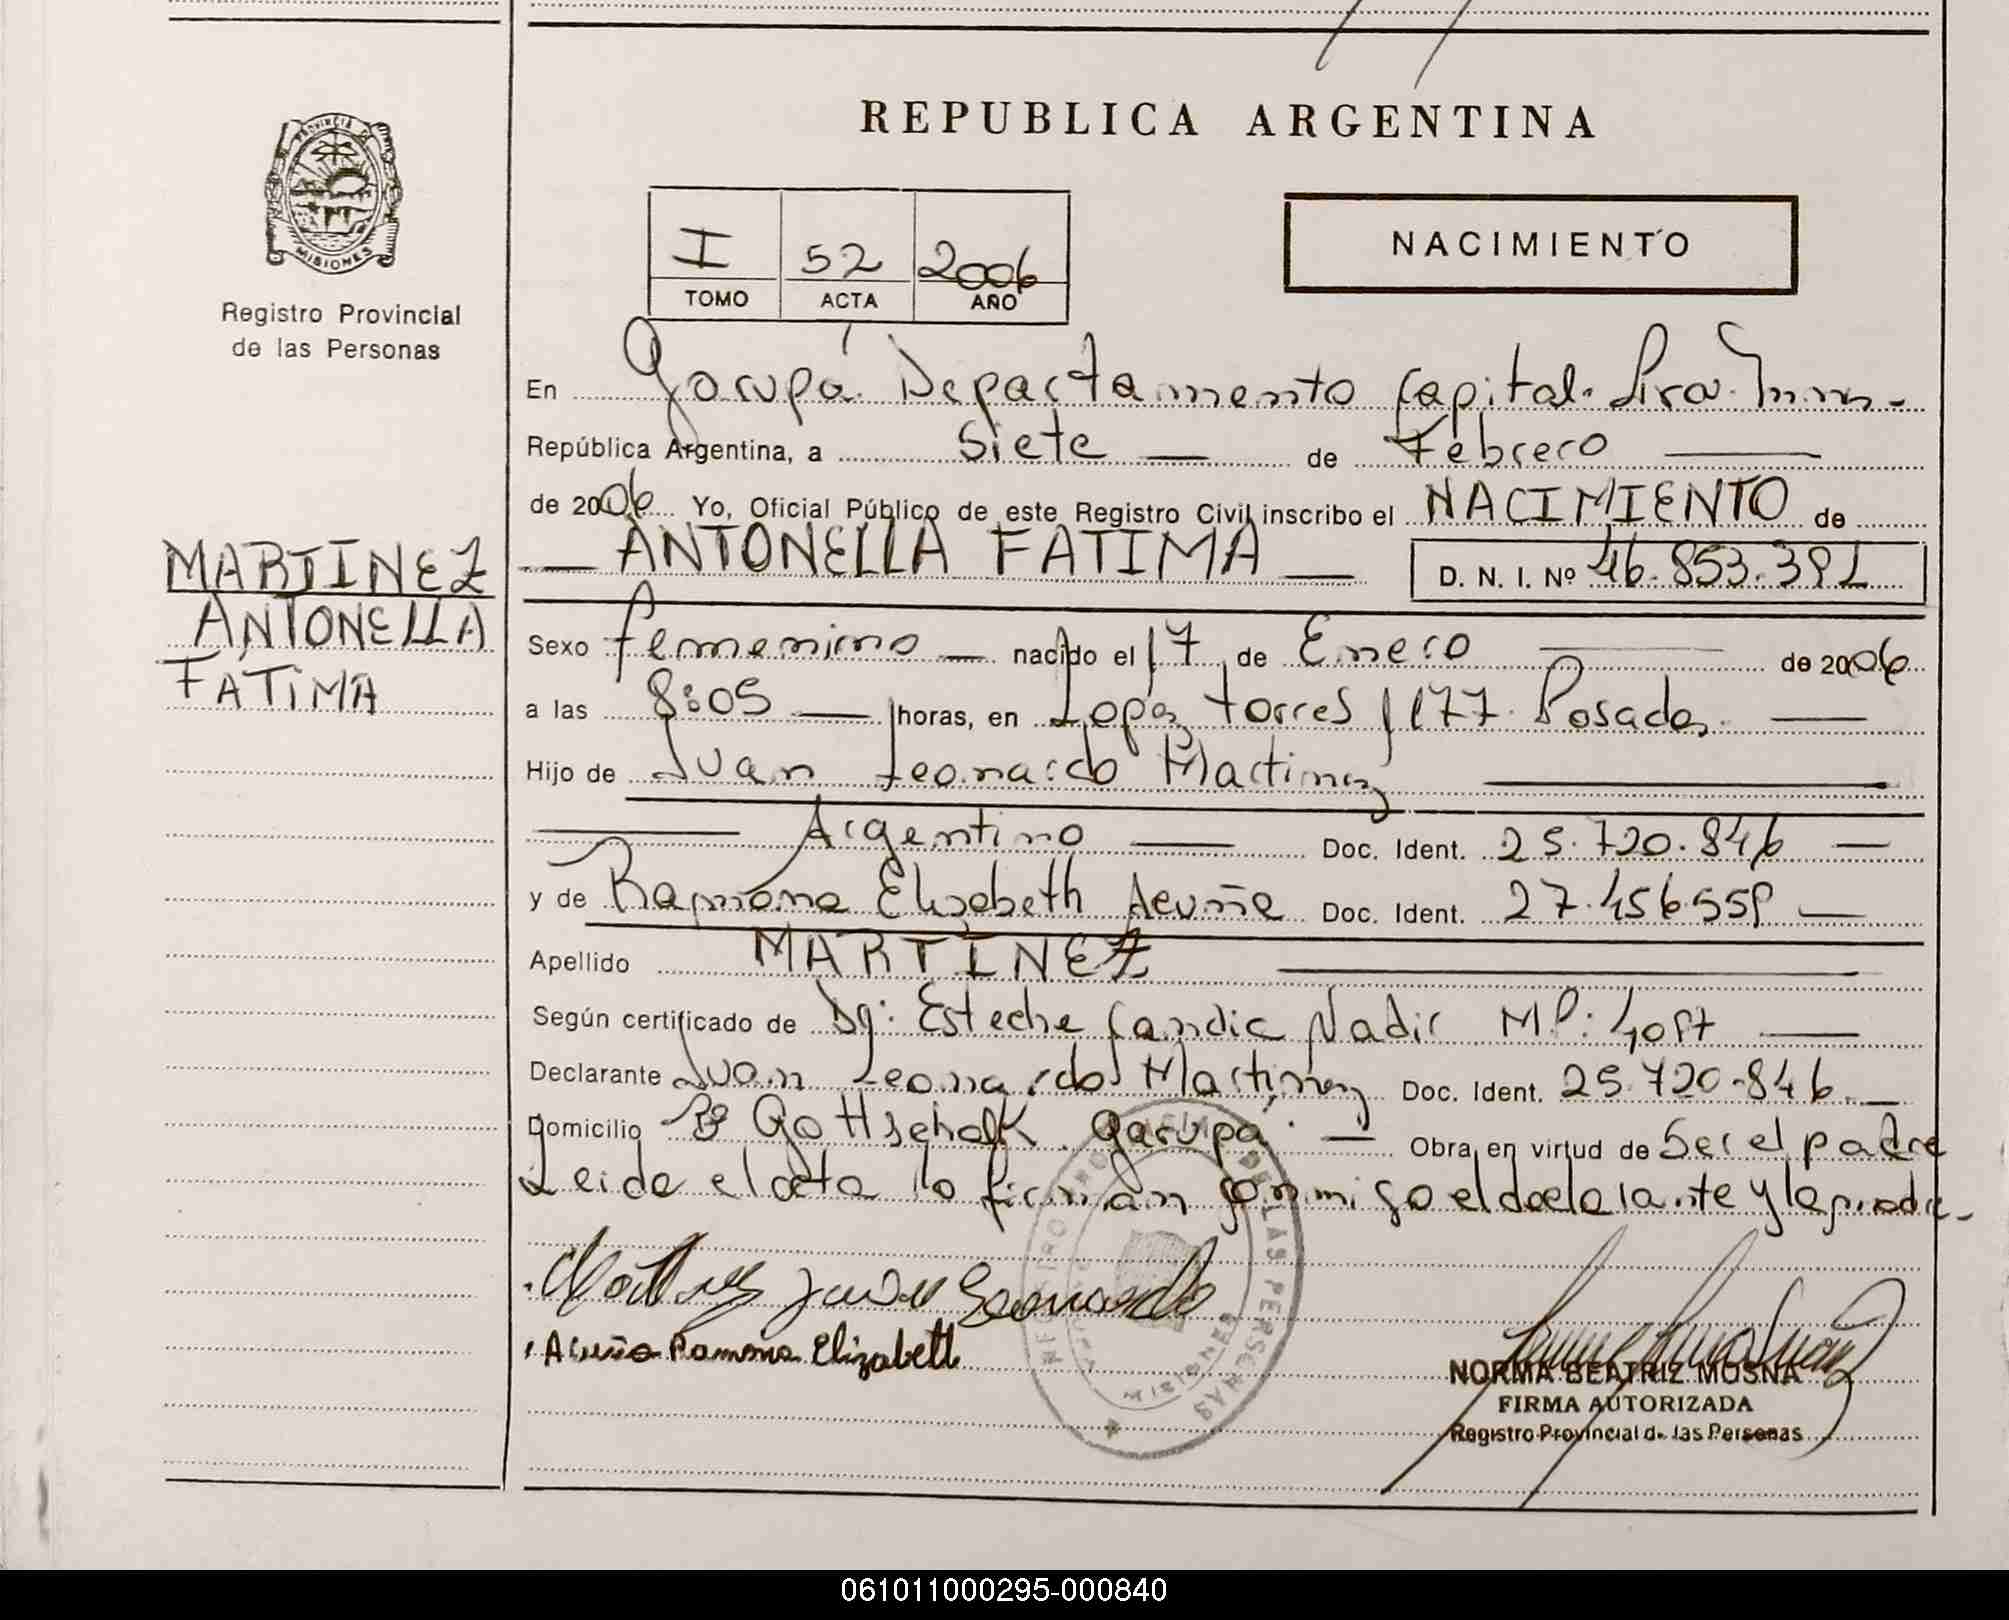 REPUBLICA ARGENTINA
PROVINCIA DE
MISIONES
Registro Provincial
de las Personas
I 52 2006
TOMO ACTA AÑO
NACIMIENTO
En Garupá Departamento Capital.
República Argentina, a Siete de Febrero
de 2006 Yo, Oficial Público de este Registro Civil inscribo el NACIMIENTO de
ANTONELLA FATIMA D. N. I. Nº 46.853.391
MARTINEZ
ANTONELLA
FATIMA
Sexo femenino nacido el 17 de Enero de 2006
a las 8:05 horas, en Lopez Torres 1177. Posadas.
Hijo de Juan Leonardo Martinez
Argentino Doc. Ident. 25.720.846
y de Ramona Elisabeth Acuña Doc. Ident. 27.456.559
Apellido MARTINEZ
Según certificado de Esteche Nadir MP:
Declarante Juan Leonardo Martinez Doc. Ident. 25.720.846
Domicilio Bº Gottschalk Garupá. Obra en virtud de Ser el padre
Leida el acta la firman conmigo el declarante y la
Acuña Ramona Elizabeth
REGISTRO PROVINCIAL DE LAS PERSONAS
MISIONES
NORMA BEATRIZ MOSNA
FIRMA AUTORIZADA
Registro Provincial de las Personas
061011000295-000840